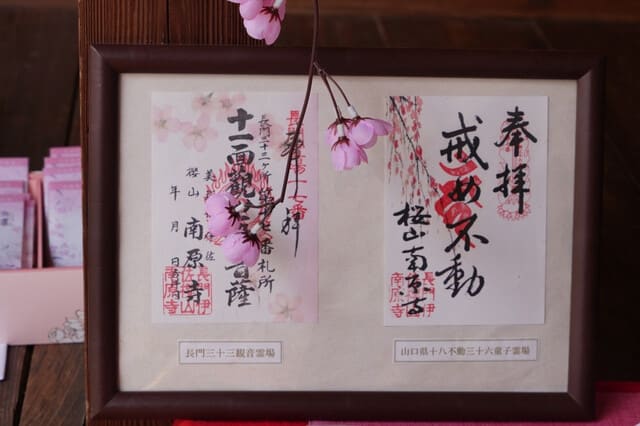 奉拝
戒め不動
桜山南原寺
山口県十八不動三十六童子霊場
拝
長門三十三ヶ所第十七番札所
十一面観世音菩薩
桜山 南原寺
年 月 日
長門三十三観音霊場